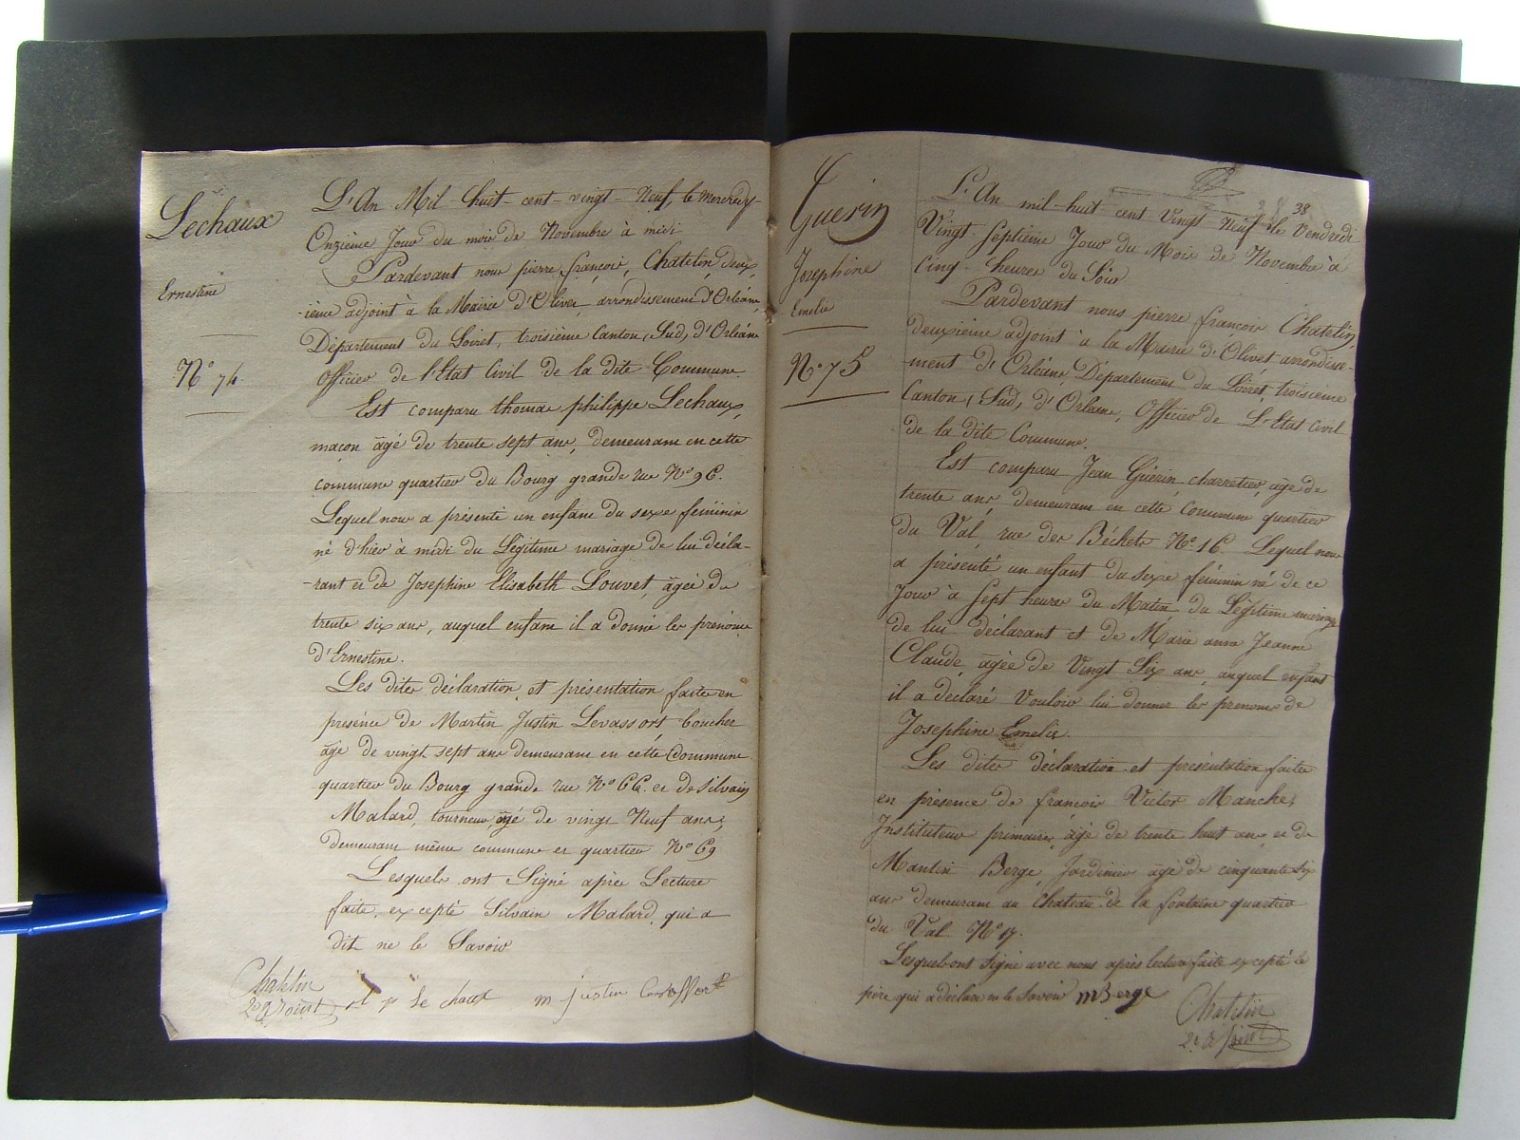 Lechaux
Ernestine
N° 74.
L'An Mil huit cent vingt Neuf, le mercredy
Onzième Jour du mois de Novembre à midi
Pardevant nous pierre françois, Chatelin, deux,
-ième adjoint à la Mairie d'Olivet arrondissement D'Orléans,
Département du Loiret, troisième Canton, Sud, d'Orléans
Officier de l'Etat Civil de la dite Commune.
Est comparu thomas philippe Lechaux,
maçon âgé de trente sept ans, demeurant en cette
commune quartier du Bourg grande rue N° 96.
Lequel nous a présenté un enfant du sexe féminin
né d'hier à midi du Légitime mariage de lui décla-
-rant et de Josephine Elisabeth Louvet, âgée de
trente six ans, auquel enfant il a donné les prénoms
d'Ernestine.
Les dites déclaration et présentation faites en
présence de Martin Justin Levassort boucher
âgé de vingt sept ans demeurant en cette Commune
quartier du Bourg grande rue N° 66. et de Silvain
Malard, tourneur, âgé de vingt Neuf ans,
demeurant même commune et quartier N° 69
Lesquels ont Signé après Lecture
faite, excepté Silvain Malard, qui a
dit ne le Savoir
Chatelin
2e adjoint
t p Le chaux
m justin Levassort
Guerin
Josephine
Emelie
N° 75
38
L'An mil-huit cent Vingt Neuf le Vendredi
Vingt Septième Jour du Mois de Novembre à
Cinq heures du Soir
Pardevant nous pierre francois Chatelin
deuxième adjoint à la Mairie d'Olivet arrondisse-
ment d'Orléans, Département du Loiret, troisieme
Canton, Sud, d'Orléans, Officier de L'Etat Civil
de la dite Commune.
Est comparu Jean Guérin charretier, âgé de
trente ans demeurant en cette Commune quartier
du Val, rue des Béchets N° 16 Lequel nous
a présenté un enfant du sexe féminin né de ce
Jour à Sept heures du Matin du Légitime mariage
de lui déclarant et de Marie anne Jeanne
Claude âgée de Vingt Six ans, auquel enfant
il a déclaré Vouloir lui donner les prenoms de
Josephine Emelie.
Les dites déclaration et présentation faites
en présence de françois Victor Manches
Instituteur primaire, âgé de trente huit ans et de
Mantin Berge Jardinier âgé de cinquante Six
ans demeurant au Chateau de la fontaine quartier
du Val N° 17.
Lesquels ont Signé avec nous après lecture faite excepté le
père qui a déclaré ne le Savoir mBerge
Chatelin
2e adjoint